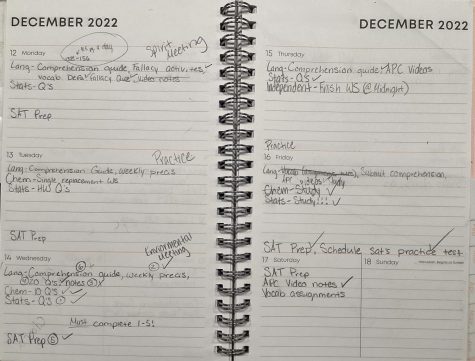 DECEMBER 2022
12 Monday
Spirit Meeting
Lang-Comprehension guide, Fallacy activities,
vocab Defs, Fallacy Quiz, Video notes
Stats-Q's
SAT Prep
13 Tuesday
Practice
Lang-Comprehension Guide, weekly precis
Chem-Single replacement WS
Stats-HW Q's
SAT Prep
14 Wednesday
Environmental Meeting
Lang-Comprehension guide, weekly precis,
20 Q's notes
Chem-10 Q's
Stats-Q's ①
Must complete 1-5!
SAT Prep ⑤
DECEMBER 2022
15 Thursday
Lang-Comprehension guide, APC Videos
Stats-Q's
Independent-Finish WS (@Midnight)
Practice
16 Friday
Submit comprehension,
Chem-Study
Stats-Study!!!
SAT Prep, Schedule Sat's practice test
17 Saturday
18 Sunday
SAT Prep
APC Video notes
Vocab assignments